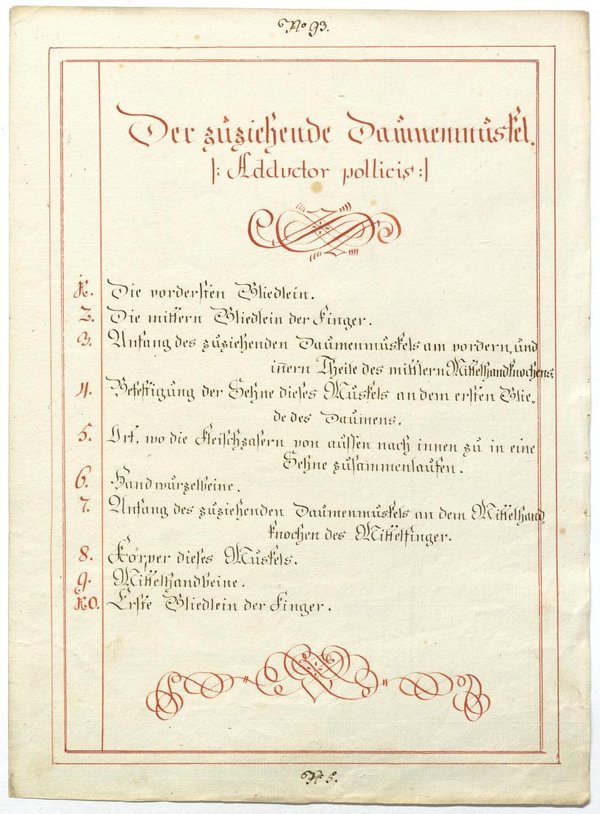 No 93.
Der zuziehende Daumenmuskel.
|: Adductor pollicis :|
1. Die vordersten Gliedlein.
2. Die mittern Gliedlein der Finger.
3. Anfang des zuziehenden Daumenmuskels am vordern, und
innern Theile des mittlern Mittelhandknochens.
4. Befestigung der Sehne dieses Muskels an dem ersten Glie„
de des Daumens.
5. Ort, wo die Fleischzasern von aussen nach innen zu in eine
Sehne zusammenlaufen.
6. Handwurzelbeine.
7. Anfang des zuziehenden Daumenmuskels an dem Mittelhand
knochen des Mittelfinger.
8. Körper dieses Muskels.
9. Mittelhandbeine.
10. Erste Gliedlein der Finger.
5.